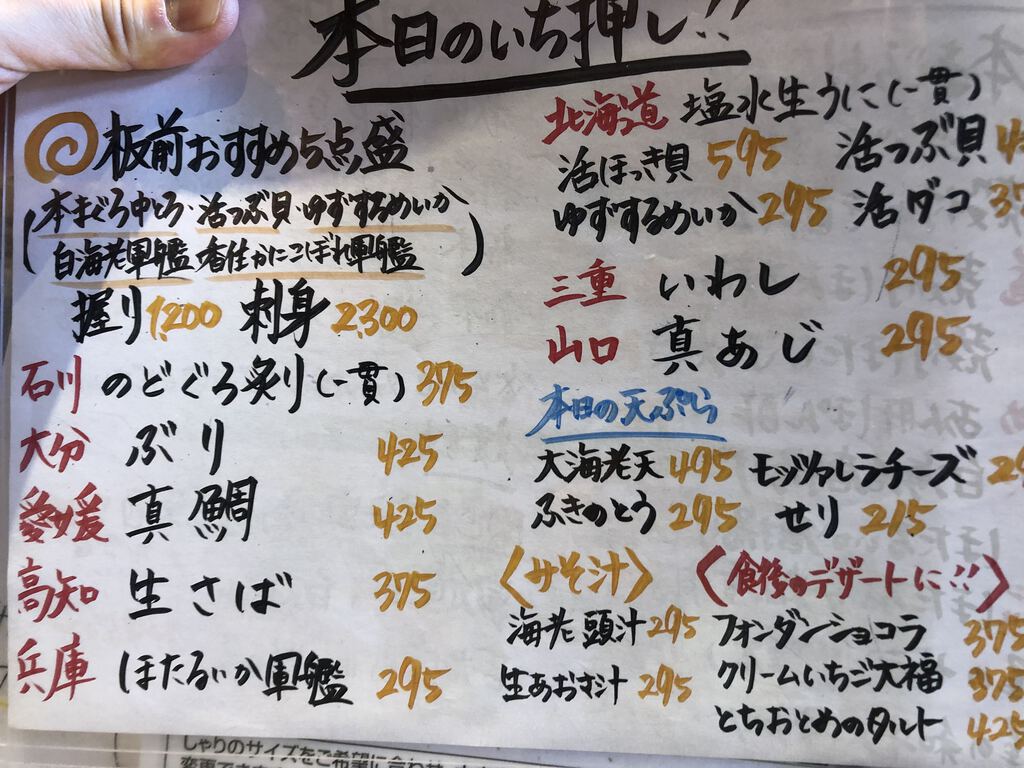 本日のいち押し!!
板前おすすめ5点盛
(本まぐろ中とろ・活つぶ貝・ゆずするめいか
白海老軍艦・香住かにこぼれ軍艦)
握り1200 刺身2,300
石川 のどぐろ炙り(一貫) 375
大分 ぶり 425
愛媛 真鯛 425
高知 生さば 375
兵庫 ほたるいか軍艦 295
北海道 塩水生うに(一貫)
活ほっき貝 595 活つぶ貝
ゆずするめいか 295 活ダコ
三重 いわし 295
山口 真あじ 295
本日の天ぷら
大海老天 495 モッツァレラチーズ
ふきのとう 295 せり 215
〈みそ汁〉
海老頭汁 295
生あおさ汁 295
〈食後のデザートに!!〉
フォンダンショコラ 375
クリームいちご大福 375
とちおとめのタルト 425
しゃりのサイズをご希望に合わせ